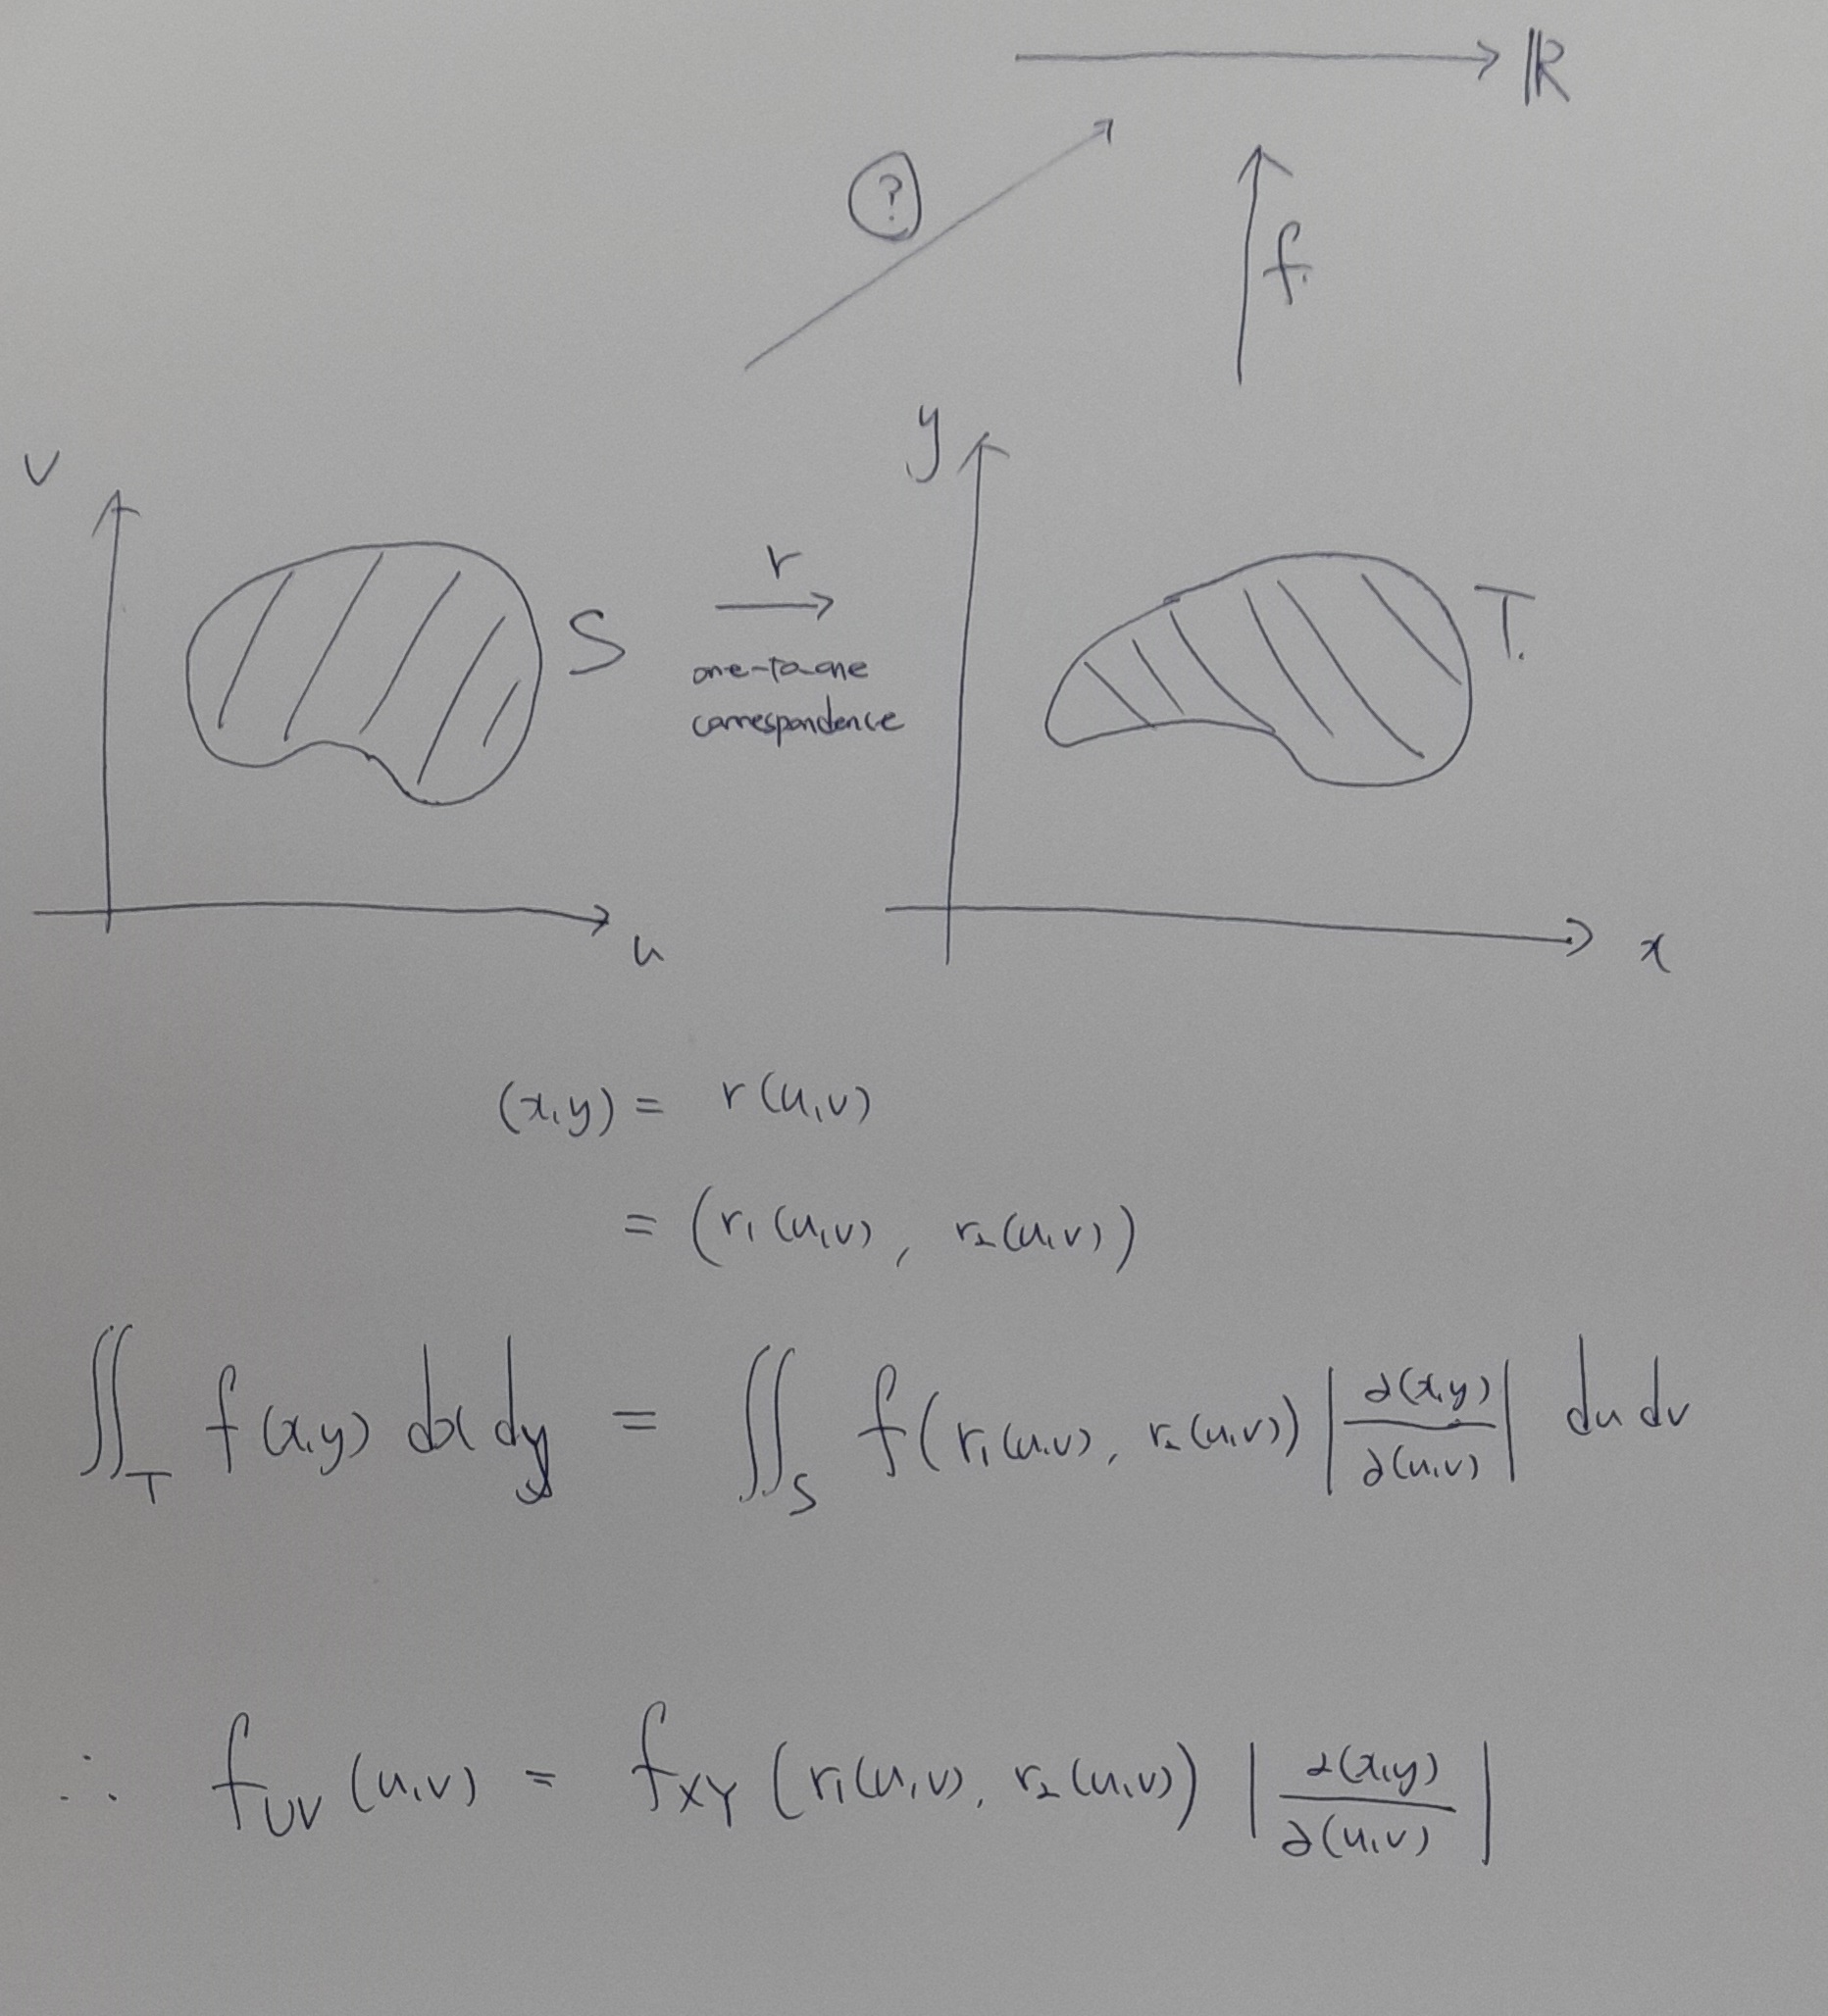 ℝ
?
f.
y
v
r
S
T.
one-to-one
correspondence
u
x
(x,y) = r(u,v)
= (r₁(u,v), r₂(u,v))
∬_T f(x,y) dx dy = ∬_S f(r₁(u,v), r₂(u,v)) |∂(x,y)/∂(u,v)| du dv
∴ f_UV (u,v) = f_XY (r₁(u,v), r₂(u,v)) |∂(x,y)/∂(u,v)|